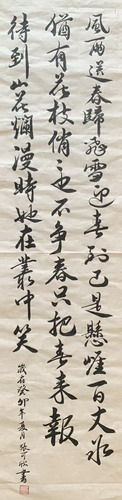 風雨送春歸飛雪迎春到已是懸崖百丈冰
猶有花枝俏也不争春只把春来報
待到山花爛漫時她在叢中笑
歲在癸卯年夏月書